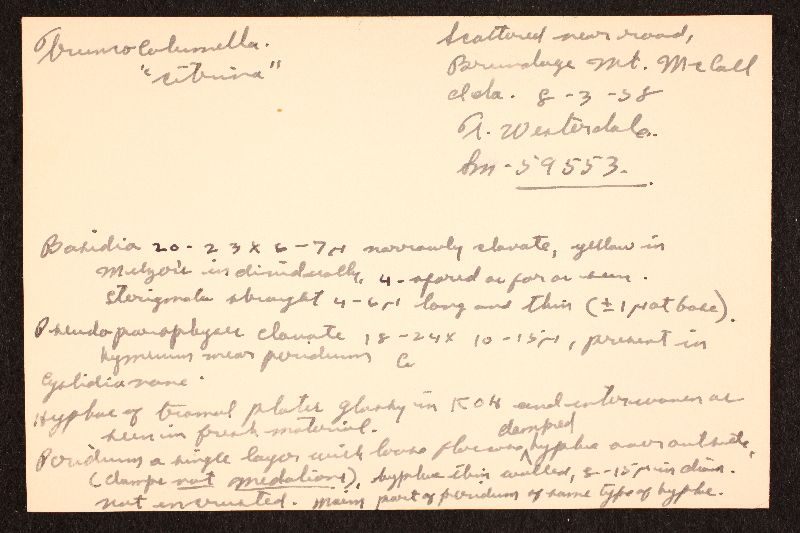 Truncocolumella.
"citrina"
Scattered near road,
Brundage Mt. McCall
Ida. 8-3-58
A. Westerdale.
Sm-59553.
Basidia 20-23 x 6-7µ narrowly clavate, yellow in
Melzer's individually, 4-spored as far as seen.
Sterigmata straight 4-6µ long and thin (±1µ at base).
Pseudoparaphyses clavate 18-24 x 10-15µ, present in
hymenium near peridium
Cystidia none.
Hyphae of tramal plates glassy in KOH and interwoven as
seen in fresh material.
clamped
Peridium a single layer with loose floccose hyphae over outside,
(clamps not medallions), hyphae thin walled, 8-15µ in diam.
not incrusted. Main part of peridium of same type of hyphae.